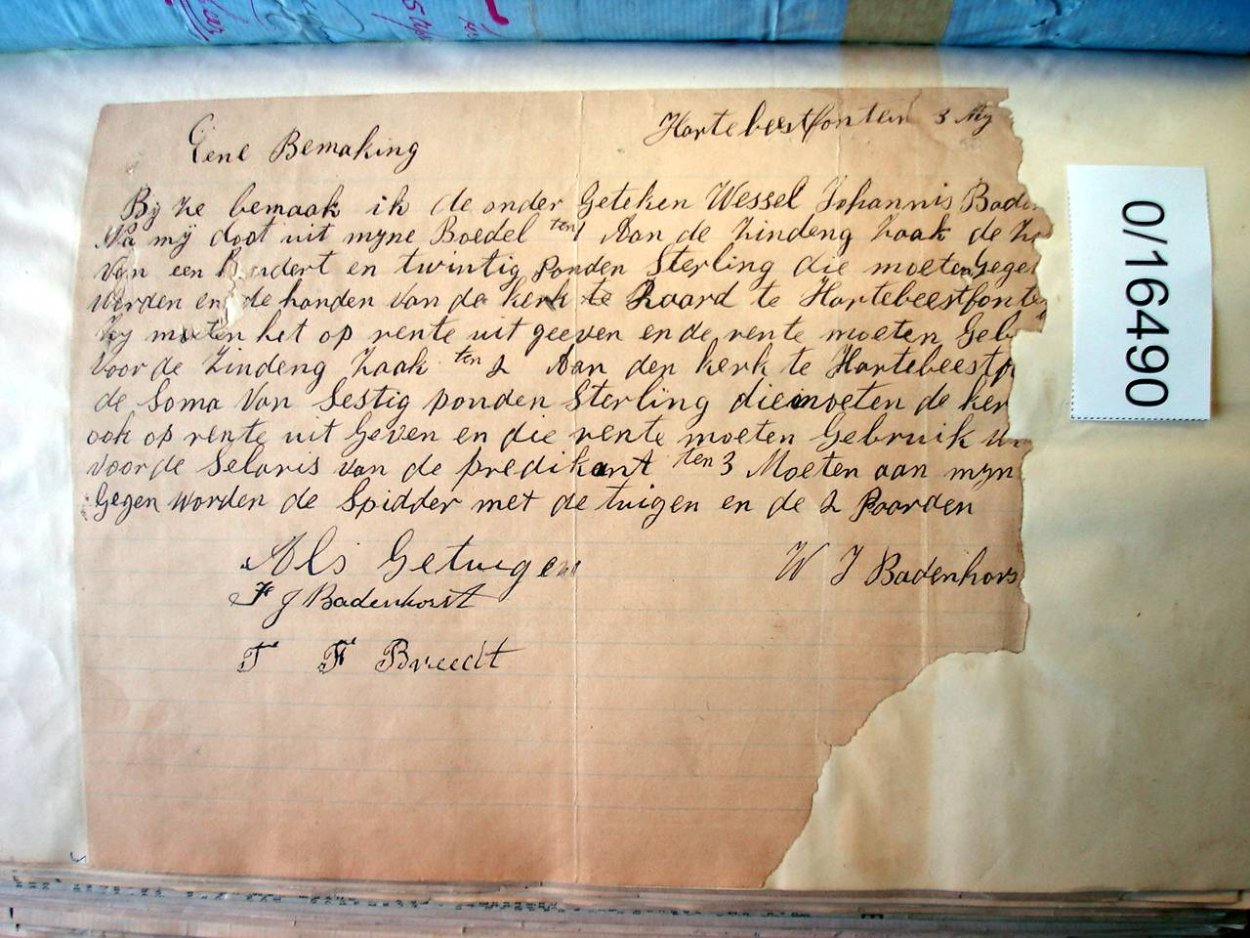 Hartebeestfontein 3 My
Eene Bemaking
By ze bemaak ik de onder Geteken Wessel Johannis Bade
Na mij doot uit myne Boedel ten 1 Aan de Zindeng Zaak de
Van een hondert en twintig Ponden Sterling die moeten gege
Werden en de handen van de kerk te Raard te Hartebeestfonte
Zy moeten het op rente uit geeven en de rente moeten Geb
Voor de Zindeng Zaak ten 2 Aan den kerk te Hartebeestf
de Soma Van Sestig ponden Sterling die moeten de ker
ook op rente uit Geven en die rente moeten Gebruik
Voor de Selaris van de predikant ten 3 Moeten aan myn
Gegen worden de Spidder met de tuigen en de 2 Paarden
Als Getuigen
W J Badenhors
F J Badenhorst
T F Breedt
0/16490